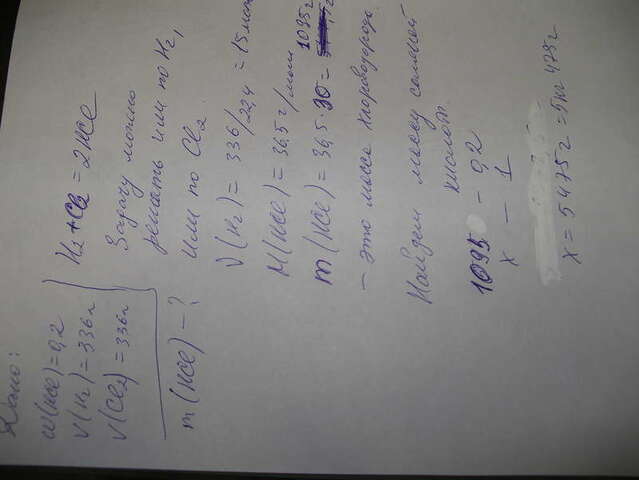 Дано:
ω(HCl)=0,2
V(H₂)=336л
V(Cl₂)=336л
m(HCl)-?
H₂+Cl₂=2HCl
Задачу можно
решать или по H₂,
или по Cl₂.
V(H₂)=336/22,4=15мол
M(HCl)=36,5г/моль
m(HCl)=36,5·30=1095г
- это масса хлороводорода.
Найдем массу соляной
кислоты.
1095-0,2
x - 1
x=5475г=5кг 475г